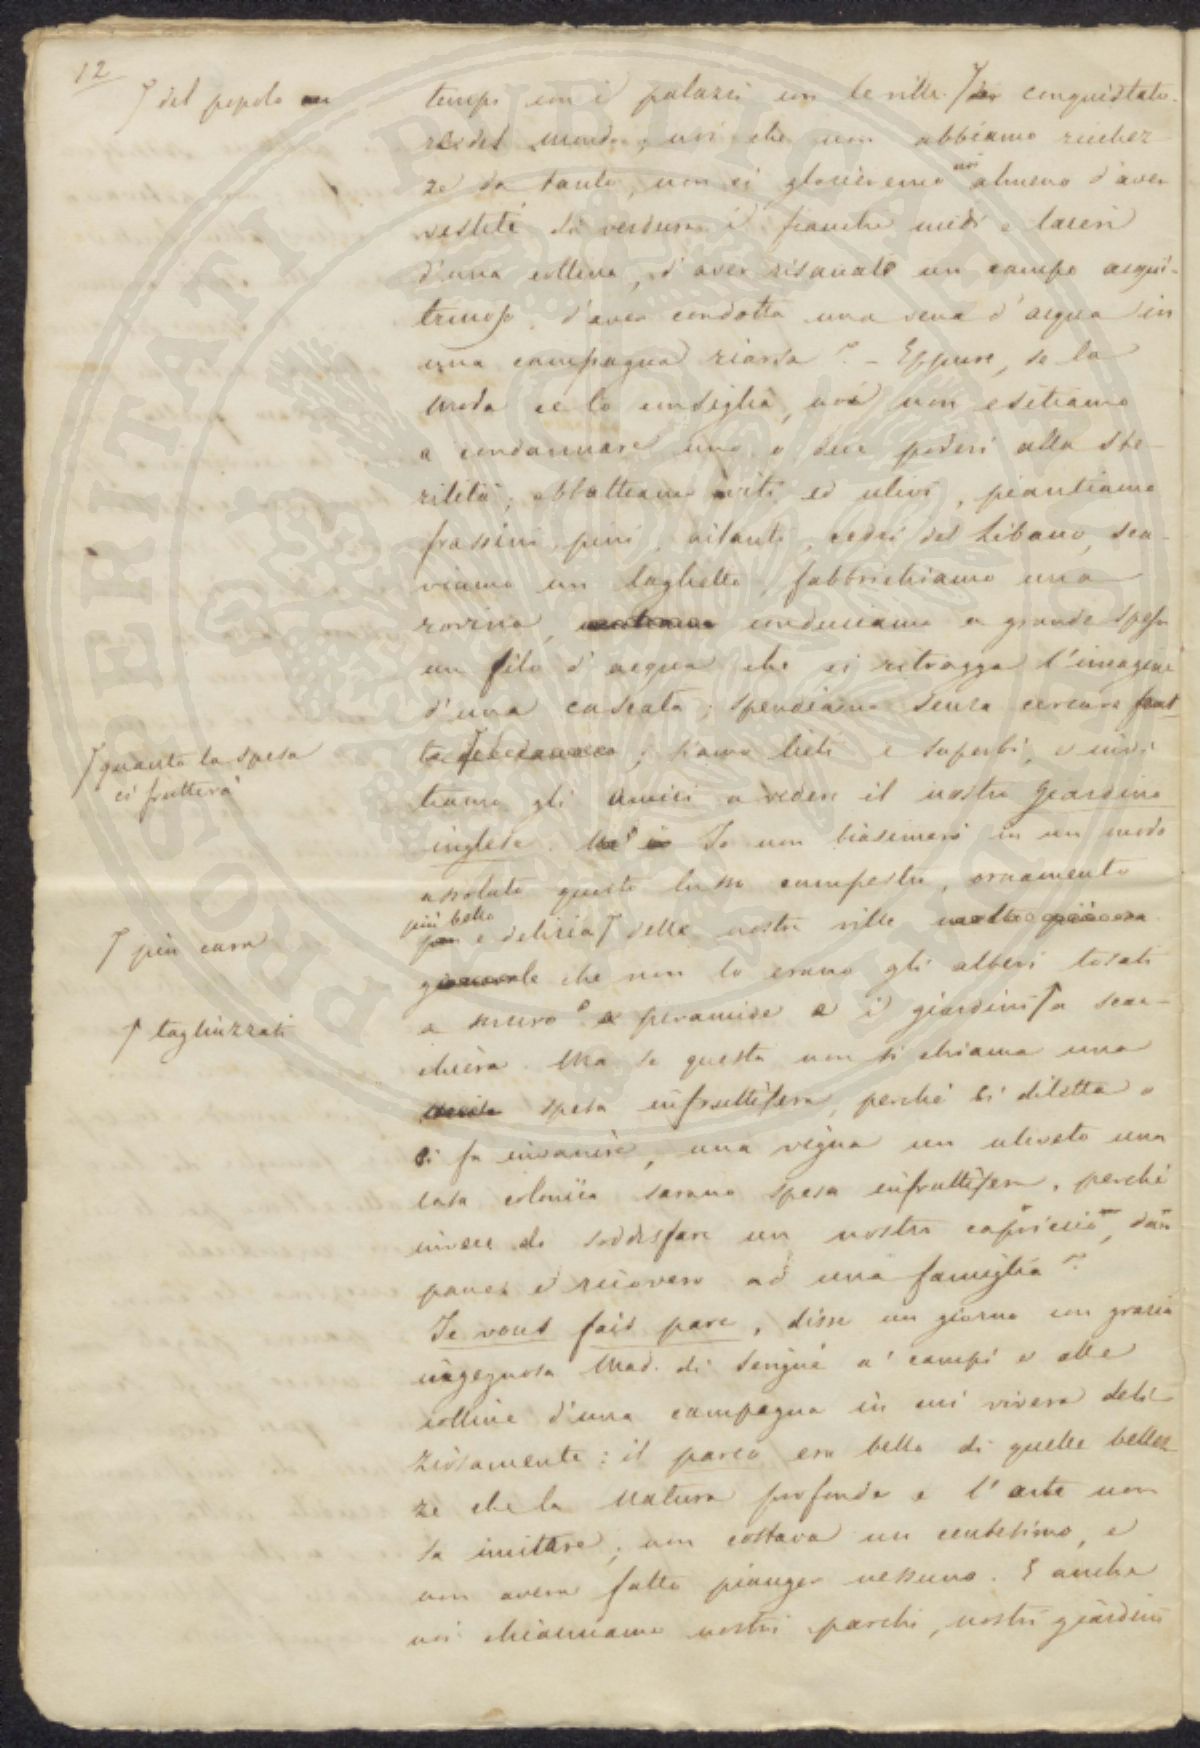 12
del popolo
tempi con i palazzi con le ville conquistato-
re del mondo, noi che non abbiamo ricchez-
ze da tanto, non ci glorieremo noi almeno d'aver
vestiti di verdura i fianchi nudi e laceri
d'una collina, d'aver risanato un campo acqui-
trinoso, d'aver condotta una vena d'acqua in
una campagna riarsa? – Eppure, se la
moda ce lo consiglia, noi non esitiamo
a condannare uno o due poderi alla ste-
rilità; abbattiamo viti ed ulivi, piantiamo
frassini, pini, ailanti, cedri del Libano, sca-
viamo un laghetto, fabbrichiamo una
rovina, conduciamo a grande spesa
un filo d'acqua che ci ritragga l'imagine
d'una cascata; spendiamo senza cercare
quanto la spesa
ci frutterà
; siamo lieti e superbi, e invi-
tiamo gli amici a vedere il nostro giardino
inglese. Io non biasimerò in un modo
assoluto questo lusso campestre, ornamento
più bello
e delizia delle nostre ville
più cara
che non lo erano gli alberi tosati
a muro o a piramide e i giardini a scac-
tagliuzzati
chiera. Ma se questa non si chiama una
spesa infruttifera, perché ci diletta o
ci fa invanire, una vigna un uliveto una
casa colonica saranno spesa infruttifera, perché
invece di soddisfare un nostro capriccio, dan
pane e ricovero ad una famiglia?
Je vous fais parc, disse un giorno con grazia
ingegnosa Mad. di Sévigné a' campi e alle
colline d'una campagna in cui viveva deli-
ziosamente: il parco era bello di quelle bellez-
ze che la natura profonde e l'arte non
sa imitare; non costava un centesimo, e
non aveva fatto pianger nessuno. E anche
noi chiamiamo nostri parchi, nostri giardini